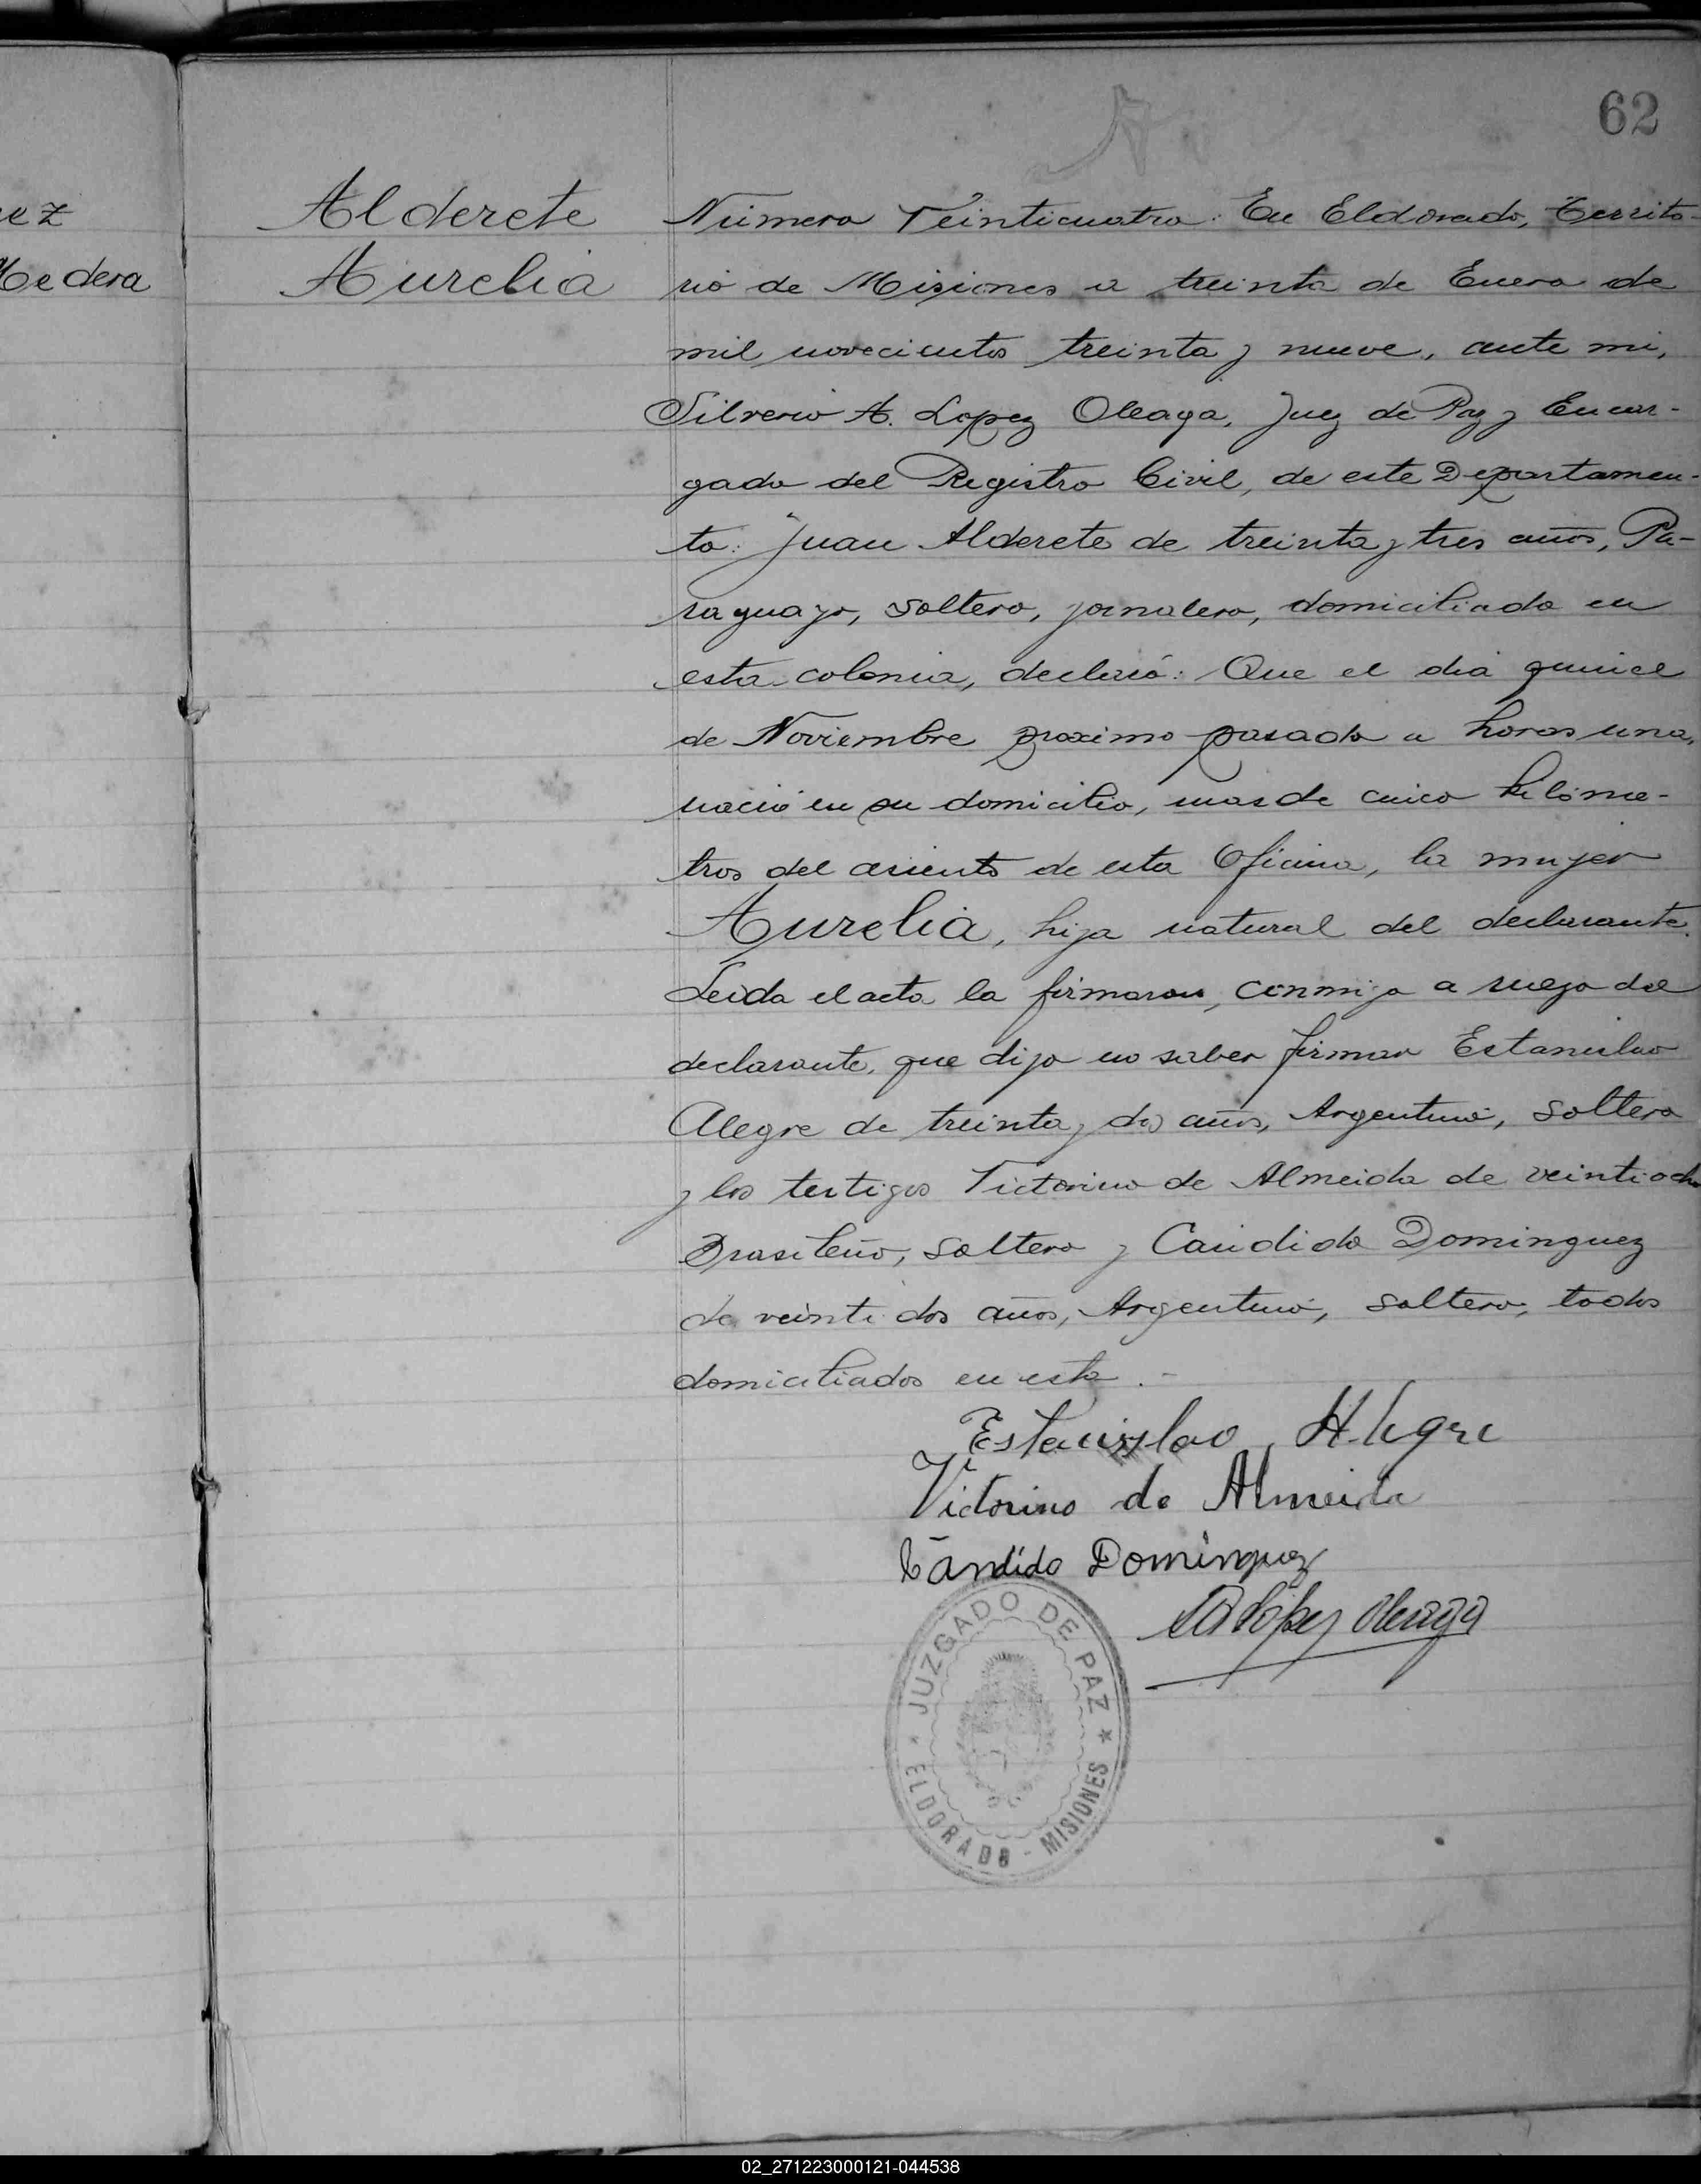 62
ez
Medera
Alderete
Aurelia
Número Veinticuatro: En Eldorado, Territo-
rio de Misiones a treinta de Enero de
mil novecientos treinta y nueve, ante mi,
Silverio A. Lopez Oleaga, Juez de Paz y Encar-
gado del Registro Civil, de este Departamen-
to: Juan Alderete de treinta y tres años, Pa-
raguayo, soltero, jornalero, domiciliado en
esta colonia, declaró: Que el dia quince
de Noviembre proximo pasado a horas una,
nació en su domicilio, mas de cinco kilóme-
tros del asiento de esta Oficina, la mujer
Aurelia, hija natural del declarante.
Leida el acta la firmaron, conmigo a ruego del
declarante, que dijo no saber firmar Estanislao
Alegre de treinta y dos años, Argentino, soltero
y los testigos Victorino de Almeida de veintiocho
Brasileño, soltero y Candido Dominguez
de veinti dos años, Argentino, soltero, todos
domiciliados en esta.-
Estanislao Alegre
Victorino de Almeida
Cándido Dominguez
SA López Oleaga
JUZGADO DE PAZ
* ELDORADO - MISIONES *
02_271223000121-044538